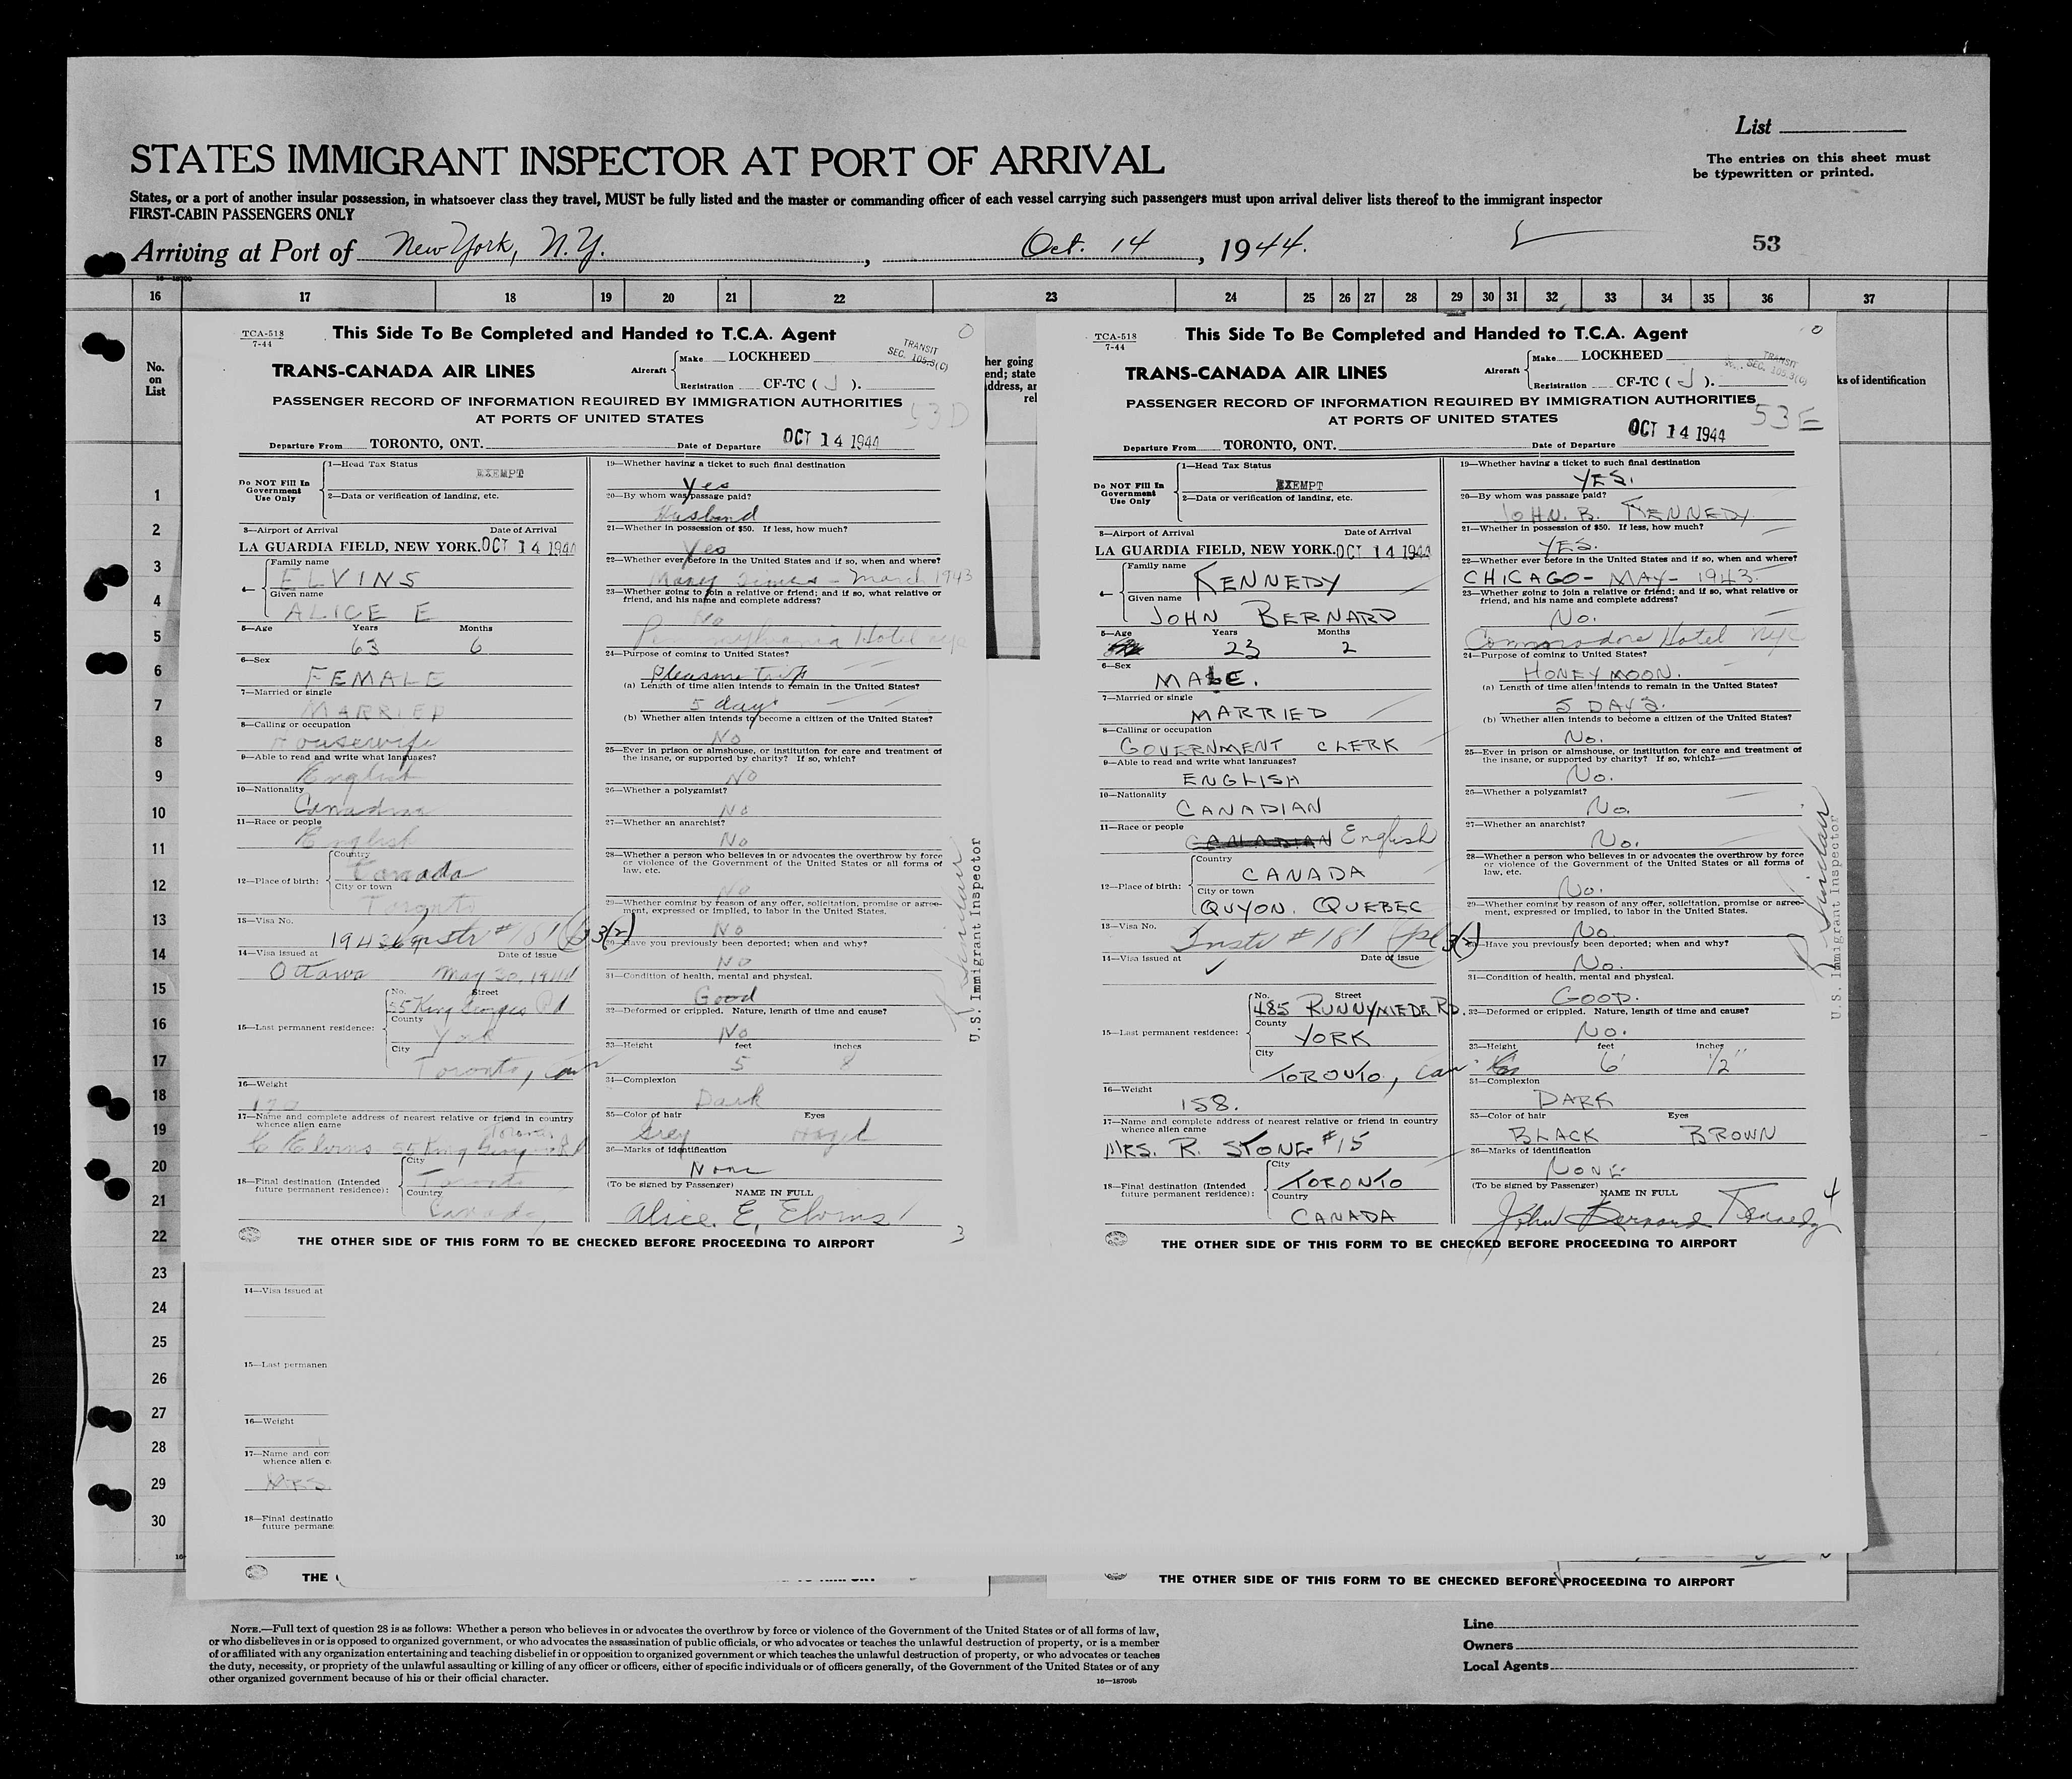 List
The entries on this sheet must
be typewritten or printed.
STATES IMMIGRANT INSPECTOR AT PORT OF ARRIVAL
States, or a port of another insular possession, in whatsoever class they travel, MUST be fully listed and the master or commanding officer of each vessel carrying such passengers must upon arrival deliver lists thereof to the immigrant inspector
FIRST-CABIN PASSENGERS ONLY
Arriving at Port of New York, N.Y. , Oct. 14 , 1944.
53
16 17 18 19 20 21 22 23 24 25 26 27 28 29 30 31 32 33 34 35 36 37
No.
on
List
her going
end; state
ddress, ar
rel
ks of identification
1
2
3
4
5
6
7
8
9
10
11
12
13
14
15
16
17
18
19
20
21
22
23
24
25
26
27
28
29
30
TCA-518
7-44
This Side To Be Completed and Handed to T.C.A. Agent
TRANSIT
SEC. 105.3(C)
TRANS-CANADA AIR LINES
Aircraft
Make LOCKHEED
Registration CF-TC ( J ).
PASSENGER RECORD OF INFORMATION REQUIRED BY IMMIGRATION AUTHORITIES
AT PORTS OF UNITED STATES
53D
Departure From TORONTO, ONT. Date of Departure OCT 14 1944
Do NOT Fill In
Government
Use Only
1—Head Tax Status
EXEMPT
2—Data or verification of landing, etc.
3—Airport of Arrival Date of Arrival
LA GUARDIA FIELD, NEW YORK. OCT 14 1944
4—
Family name
ELVINS
Given name
ALICE E
5—Age Years Months
63 6
6—Sex
FEMALE
7—Married or single
MARRIED
8—Calling or occupation
Housewife
9—Able to read and write what languages?
English
10—Nationality
Canadian
11—Race or people
English
12—Place of birth:
Country
Canada
City or town
Toronto
13—Visa No.
14—Visa issued at Date of issue
Ottawa May 30, 1944
15—Last permanent residence:
No. Street
55 King Georges Rd
County
York
City
Toronto, Can
16—Weight
170
17—Name and complete address of nearest relative or friend in country
whence alien came
Toronto
C Elvins 55 King George Rd
18—Final destination (Intended
future permanent residence):
City
Toronto
Country
Canada
19—Whether having a ticket to such final destination
Yes
20—By whom was passage paid?
Husband
21—Whether in possession of $50. If less, how much?
Yes
22—Whether ever before in the United States and if so, when and where?
Many times - March 1943
23—Whether going to join a relative or friend; and if so, what relative or
friend, and his name and complete address?
No
Pennsylvania Hotel nyc
24—Purpose of coming to United States?
Pleasure trip
(a) Length of time alien intends to remain in the United States?
5 days
(b) Whether alien intends to become a citizen of the United States?
No
25—Ever in prison or almshouse, or institution for care and treatment of
the insane, or supported by charity? If so, which?
No
26—Whether a polygamist?
No
27—Whether an anarchist?
No
28—Whether a person who believes in or advocates the overthrow by force
or violence of the Government of the United States or all forms of
law, etc.
No
29—Whether coming by reason of any offer, solicitation, promise or agree-
ment, expressed or implied, to labor in the United States.
No
30—Have you previously been deported; when and why?
No
31—Condition of health, mental and physical.
Good
32—Deformed or crippled. Nature, length of time and cause?
No
33—Height feet inches
5 8
34—Complexion
Dark
35—Color of hair Eyes
Grey Hazel
36—Marks of identification
None
(To be signed by Passenger)
NAME IN FULL
Alice. E. Elvins
THE OTHER SIDE OF THIS FORM TO BE CHECKED BEFORE PROCEEDING TO AIRPORT
3
U.S. Immigrant Inspector
TCA-518
7-44
This Side To Be Completed and Handed to T.C.A. Agent
TRANSIT
SEC. 105.3(C)
TRANS-CANADA AIR LINES
Aircraft
Make LOCKHEED
Registration CF-TC ( J ).
PASSENGER RECORD OF INFORMATION REQUIRED BY IMMIGRATION AUTHORITIES
AT PORTS OF UNITED STATES
53E
Departure From TORONTO, ONT. Date of Departure OCT 14 1944
Do NOT Fill In
Government
Use Only
1—Head Tax Status
EXEMPT
2—Data or verification of landing, etc.
3—Airport of Arrival Date of Arrival
LA GUARDIA FIELD, NEW YORK. OCT 14 1944
4—
Family name
KENNEDY
Given name
JOHN BERNARD
5—Age Years Months
23 2
6—Sex
MALE.
7—Married or single
MARRIED
8—Calling or occupation
GOVERNMENT CLERK
9—Able to read and write what languages?
ENGLISH
10—Nationality
CANADIAN
11—Race or people
CANADIAN English
12—Place of birth:
Country
CANADA
City or town
QUYON. QUEBEC
13—Visa No.
Instr # 181
14—Visa issued at Date of issue
15—Last permanent residence:
No. Street
485 RUNNYMEDE RD.
County
YORK
City
TORONTO, Can
16—Weight
158.
17—Name and complete address of nearest relative or friend in country
whence alien came
MRS. R. STONE #15
18—Final destination (Intended
future permanent residence):
City
TORONTO
Country
CANADA
19—Whether having a ticket to such final destination
YES.
20—By whom was passage paid?
JOHN. B. KENNEDY.
21—Whether in possession of $50. If less, how much?
YES.
22—Whether ever before in the United States and if so, when and where?
CHICAGO - MAY - 1943.
23—Whether going to join a relative or friend; and if so, what relative or
friend, and his name and complete address?
No.
Commodore Hotel NYC
24—Purpose of coming to United States?
HONEYMOON.
(a) Length of time alien intends to remain in the United States?
5 DAYS.
(b) Whether alien intends to become a citizen of the United States?
No.
25—Ever in prison or almshouse, or institution for care and treatment of
the insane, or supported by charity? If so, which?
No.
26—Whether a polygamist?
No.
27—Whether an anarchist?
No.
28—Whether a person who believes in or advocates the overthrow by force
or violence of the Government of the United States or all forms of
law, etc.
No.
29—Whether coming by reason of any offer, solicitation, promise or agree-
ment, expressed or implied, to labor in the United States.
No.
30—Have you previously been deported; when and why?
No.
31—Condition of health, mental and physical.
GOOD.
32—Deformed or crippled. Nature, length of time and cause?
No.
33—Height feet inches
6' 1/2"
34—Complexion
DARK
35—Color of hair Eyes
BLACK BROWN
36—Marks of identification
NONE
(To be signed by Passenger)
NAME IN FULL
John Bernard Kennedy
4
THE OTHER SIDE OF THIS FORM TO BE CHECKED BEFORE PROCEEDING TO AIRPORT
U.S. Immigrant Inspector
14—Visa issued at
15—Last permanen
16—Weight
17—Name and com
whence alien c
MRS
18—Final destinatio
future permane
THE
THE OTHER SIDE OF THIS FORM TO BE CHECKED BEFORE PROCEEDING TO AIRPORT
NOTE.—Full text of question 28 is as follows: Whether a person who believes in or advocates the overthrow by force or violence of the Government of the United States or of all forms of law,
or who disbelieves in or is opposed to organized government, or who advocates the assassination of public officials, or who advocates or teaches the unlawful destruction of property, or is a member
of or affiliated with any organization entertaining and teaching disbelief in or opposition to organized government or which teaches the unlawful destruction of property, or who advocates or teaches
the duty, necessity, or propriety of the unlawful assaulting or killing of any officer or officers, either of specific individuals or of officers generally, of the Government of the United States or of any
other organized government because of his or their official character.
16—18709b
Line
Owners
Local Agents